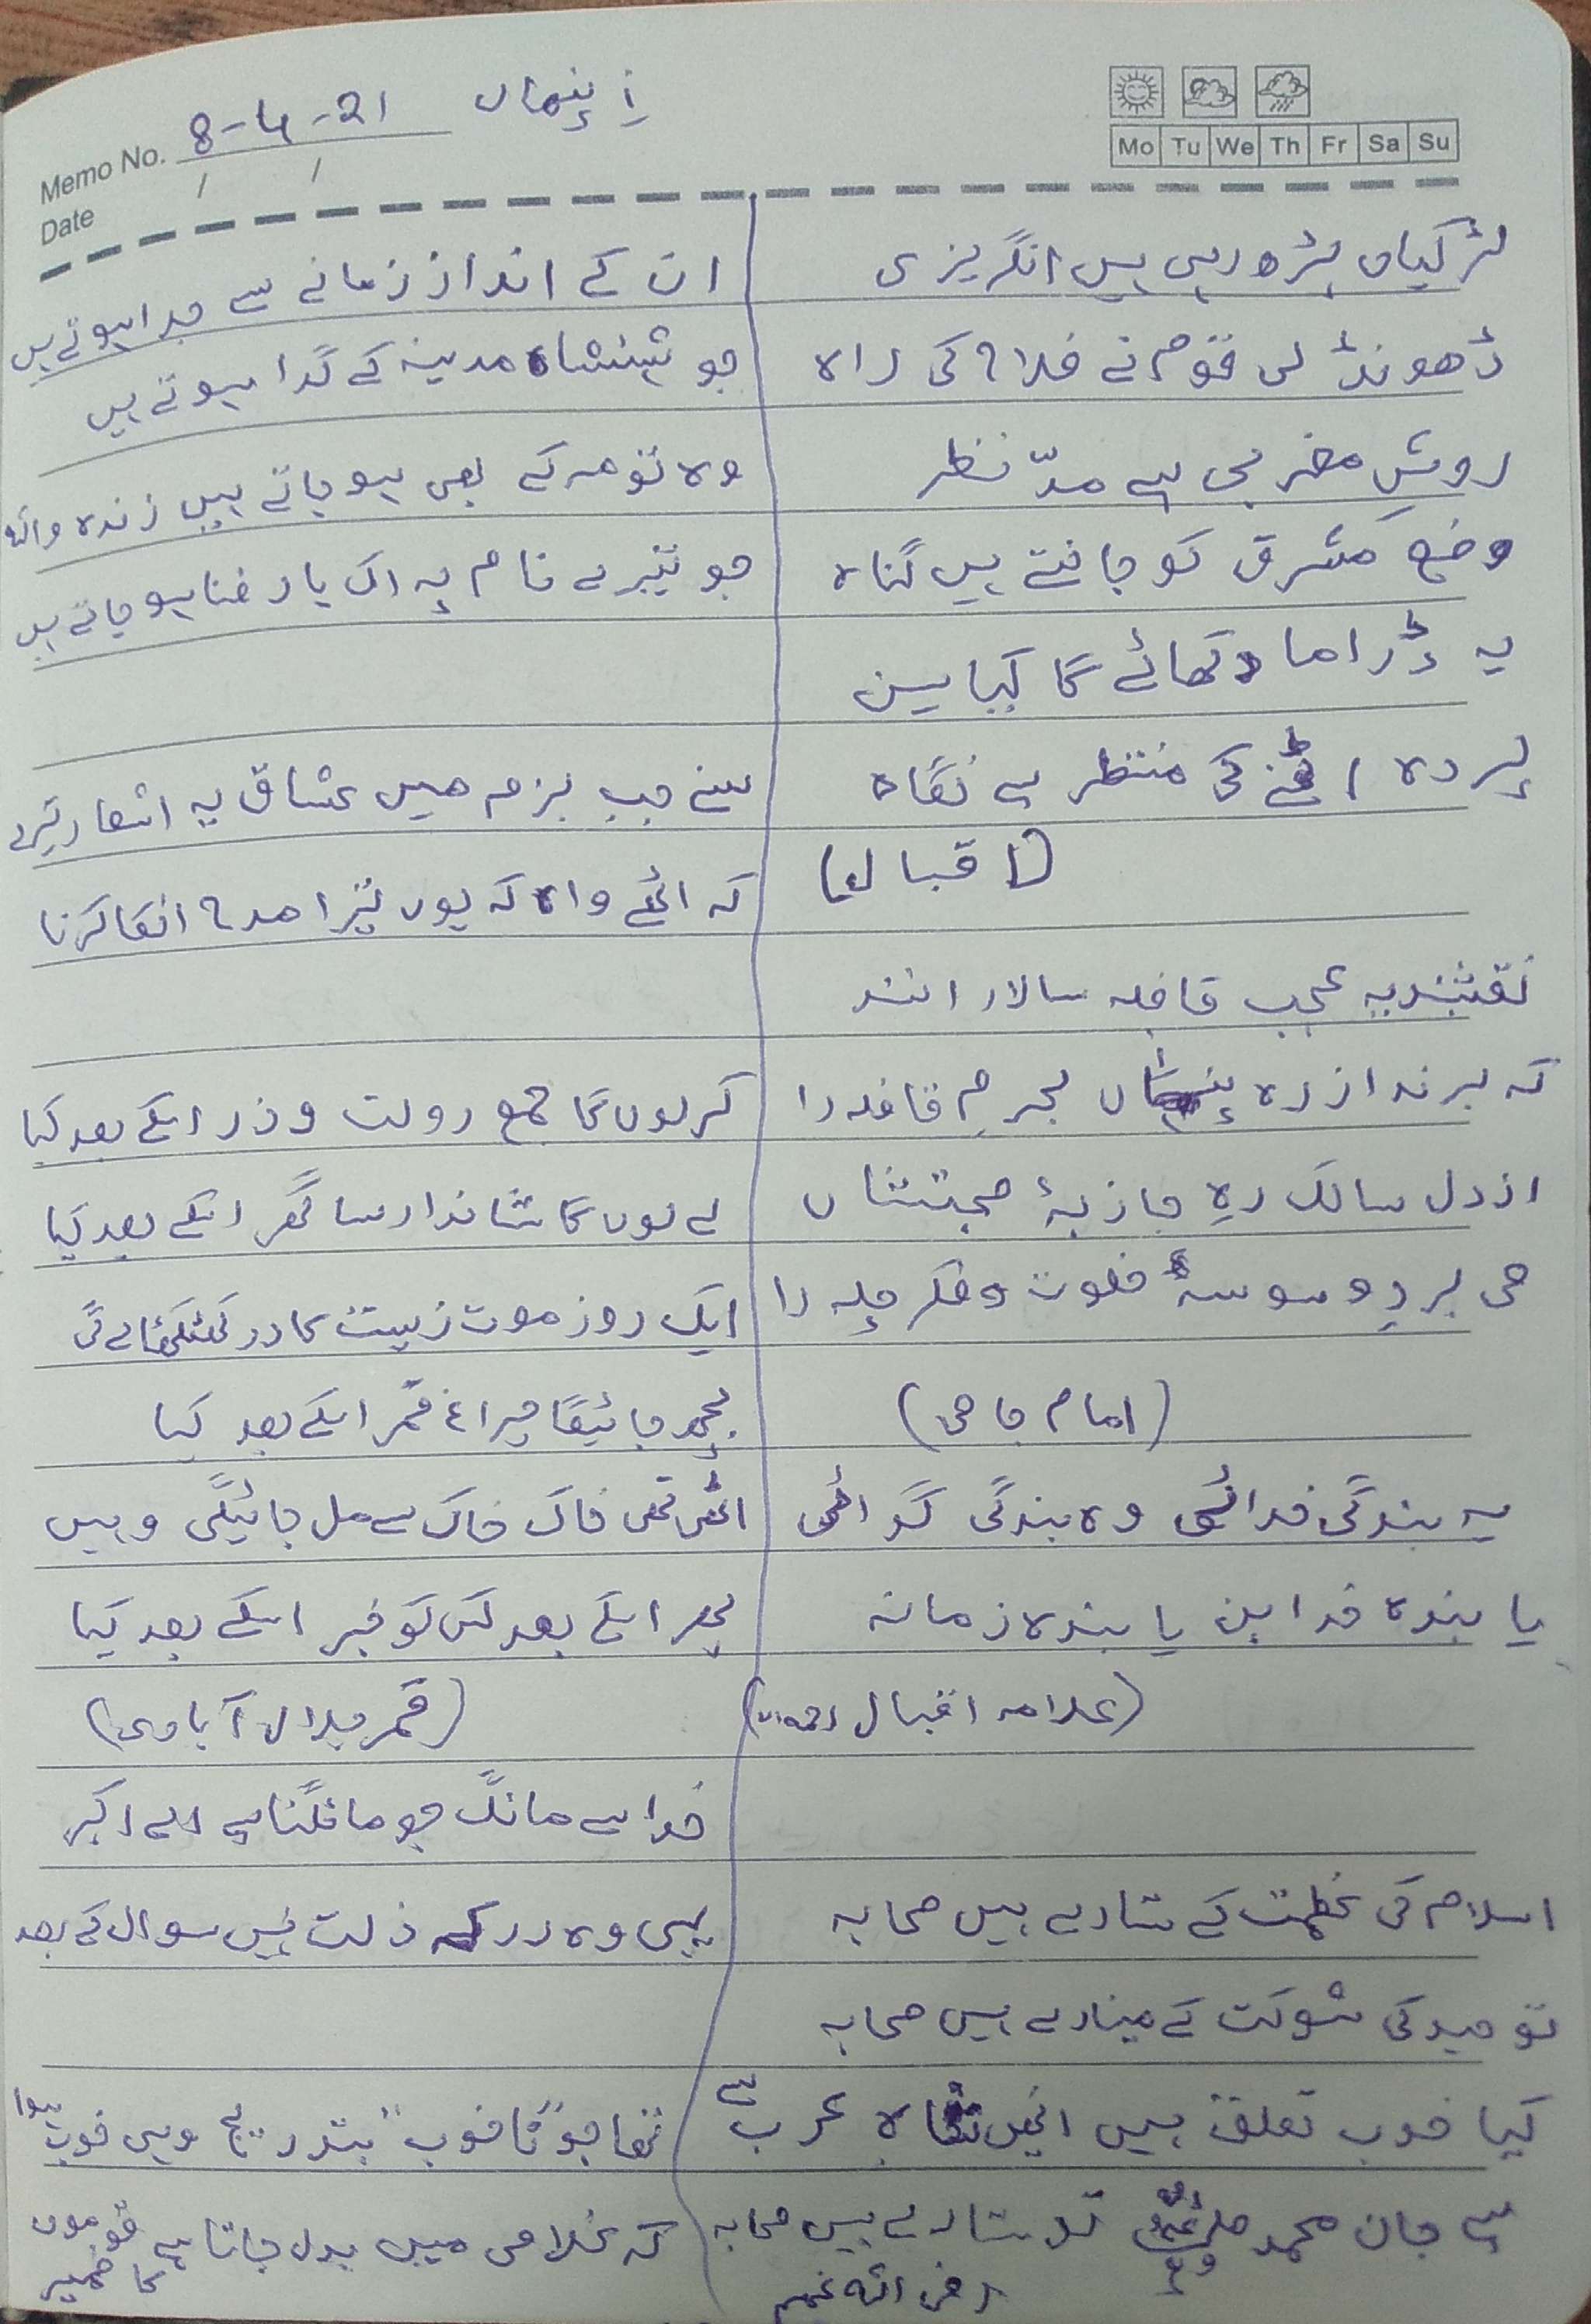 Memo No. 8-4-21
Date / /
Mo Tu We Th Fr Sa Su
لڑکیاں پڑھ رہی ہیں انگریزی
ڈھونڈ لی قوم نے فلاح کی راہ
روشِ مغربی ہے مدّ نظر
وضع مشرق کو جانتے ہیں گناہ
یہ ڈراما دکھائے گا کیا سین
پردہ اٹھنے کی منتظر ہے نگاہ
(اقبال)
نقشبندیہ عجب قافلہ سالار انند
کہ برند از رہ پنہاں بحرم قافلہ را
از دل سالک رہِ جازبۂ صحبتشاں
می بردِ وسوسۂ خلوت و فکر چلہ را
(امام جامی)
یہ بندگی خدائی وہ بندگی گدائی
یا بندہ خدا بن یا بندہ زمانہ
(علامہ اقبال رحمہ اللہ)
اسلام کی عظمت کے ستارے ہیں صحابہ
توحید کی شوکت کے مینارے ہیں صحابہ
کیا خوب تعلق ہیں انہیں شاہِ عرب سے
ہے جان محمد تو ستارے ہیں صحابہ
رضی اللہ عنہم
ان کے انداز زمانے سے جدا ہوتے ہیں
جو شہنشاہ مدینہ کے گدا ہوتے ہیں
وہ تو مر کے بھی ہو جاتے ہیں زندہ واللہ
جو تیرے نام پہ اک یار فنا ہو جاتے ہیں
سنے جب بزم میں عشاق یہ اشعار تیرے
کہ اٹھے واہ کہ یوں تیرا مدح انکا کرنا
کرلوں گا جمع دولت و زر اسکے بعد کیا
لے لوں گا شاندار سا گھر اسکے بعد کیا
ایک روز موت زیست کا در کھٹکھٹائے گی
بجھ جائیگا چراغ قمر اسکے بعد کیا
اٹھی تھی خاک خاک سے مل جائیگی وہیں
پھر اسکے بعد کس کو خبر اسکے بعد کیا
(قمر جلال آبادی)
خدا سے مانگ جو مانگنا ہے اے اکبر
یہی وہ در کہ ذلت نہیں سوال کے بعد
تھا جو "نا خوب" بتدریج وہی خوب ہوا
کہ غلامی میں بدل جاتا ہے قوموں کا ضمیر